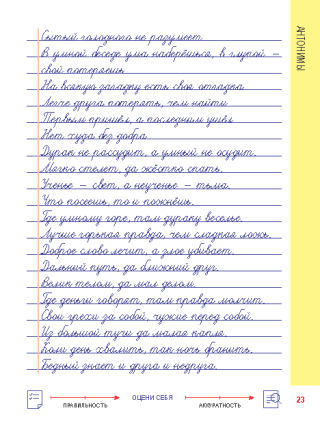 АНТОНИМЫ
Сытый голодного не разумеет.
В умной беседе ума наберёшься, в глупой –
свой потеряешь.
На всякую загадку есть своя отгадка.
Легче друга потерять, чем найти.
Первым пришёл, а последним ушёл.
Нет худа без добра.
Дурак не рассудит, а умный не осудит.
Мягко стелет, да жёстко спать.
Ученье – свет, а неученье – тьма.
Что посеешь, то и пожнёшь.
Где умному горе, там дураку веселье.
Лучше горькая правда, чем сладкая ложь.
Доброе слово лечит, а злое убивает.
Дальний путь, да ближний друг.
Велик телом, да мал делом.
Где деньги говорят, там правда молчит.
Свои грехи за собой, чужие перед собой.
Из большой тучи да малая капля.
Коли день хвалить, так ночь бранить.
Бедный знает и друга и недруга.
ПРАВИЛЬНОСТЬ
ОЦЕНИ СЕБЯ
АККУРАТНОСТЬ
23